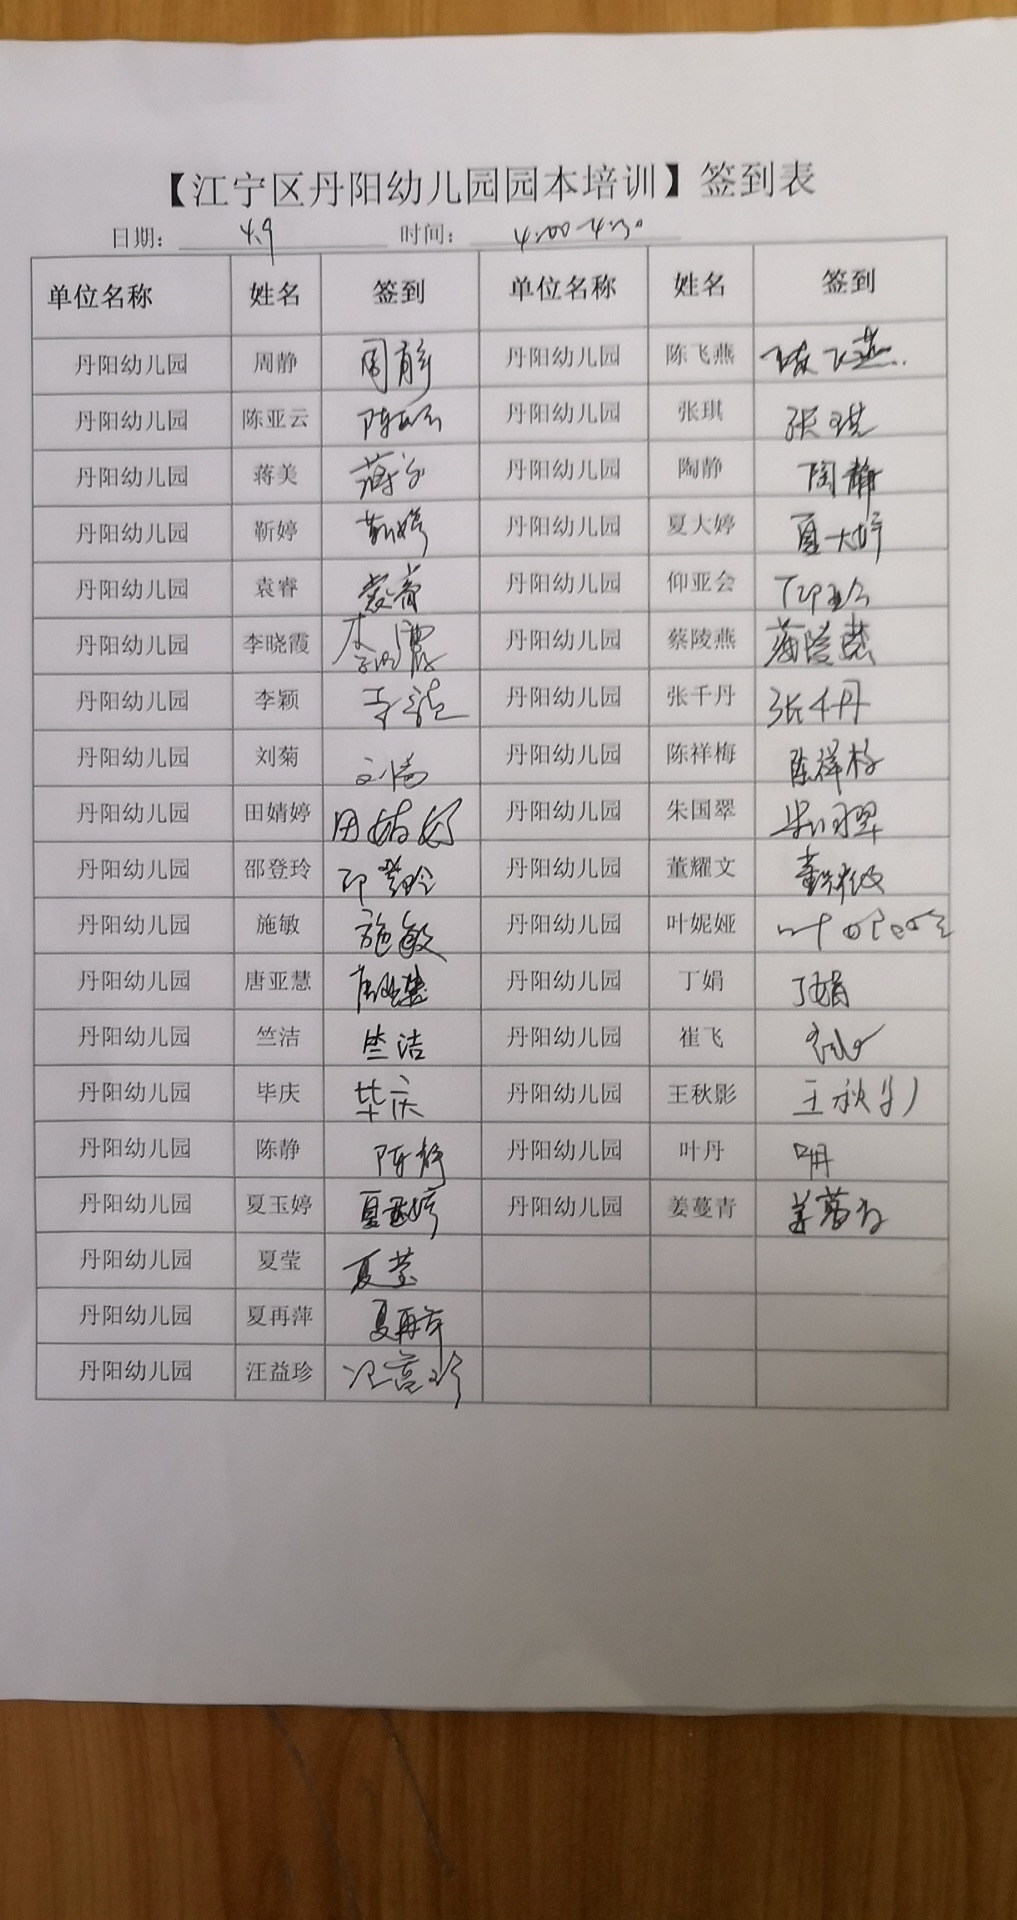 【江宁区丹阳幼儿园园本培训】签到表
日期： 4.9 时间： 4:00-4:30
单位名称 姓名 签到 单位名称 姓名 签到
丹阳幼儿园 周静 周静 丹阳幼儿园 陈飞燕 陈飞燕
丹阳幼儿园 陈亚云 陈亚云 丹阳幼儿园 张琪 张琪
丹阳幼儿园 蒋美 蒋美 丹阳幼儿园 陶静 陶静
丹阳幼儿园 靳婷 靳婷 丹阳幼儿园 夏大婷 夏大婷
丹阳幼儿园 袁睿 袁睿 丹阳幼儿园 仰亚会 仰亚会
丹阳幼儿园 李晓霞 李晓霞 丹阳幼儿园 蔡陵燕 蔡陵燕
丹阳幼儿园 李颖 李颖 丹阳幼儿园 张千丹 张千丹
丹阳幼儿园 刘菊 刘菊 丹阳幼儿园 陈祥梅 陈祥梅
丹阳幼儿园 田婧婷 田婧婷 丹阳幼儿园 朱国翠 朱国翠
丹阳幼儿园 邵登玲 邵登玲 丹阳幼儿园 董耀文 董耀文
丹阳幼儿园 施敏 施敏 丹阳幼儿园 叶妮娅 叶妮娅
丹阳幼儿园 唐亚慧 唐亚慧 丹阳幼儿园 丁娟 丁娟
丹阳幼儿园 竺洁 竺洁 丹阳幼儿园 崔飞 崔飞
丹阳幼儿园 毕庆 毕庆 丹阳幼儿园 王秋影 王秋影
丹阳幼儿园 陈静 陈静 丹阳幼儿园 叶丹 叶丹
丹阳幼儿园 夏玉婷 夏玉婷 丹阳幼儿园 姜蔓青 姜蔓青
丹阳幼儿园 夏莹 夏莹
丹阳幼儿园 夏再萍 夏再萍
丹阳幼儿园 汪益珍 汪益珍